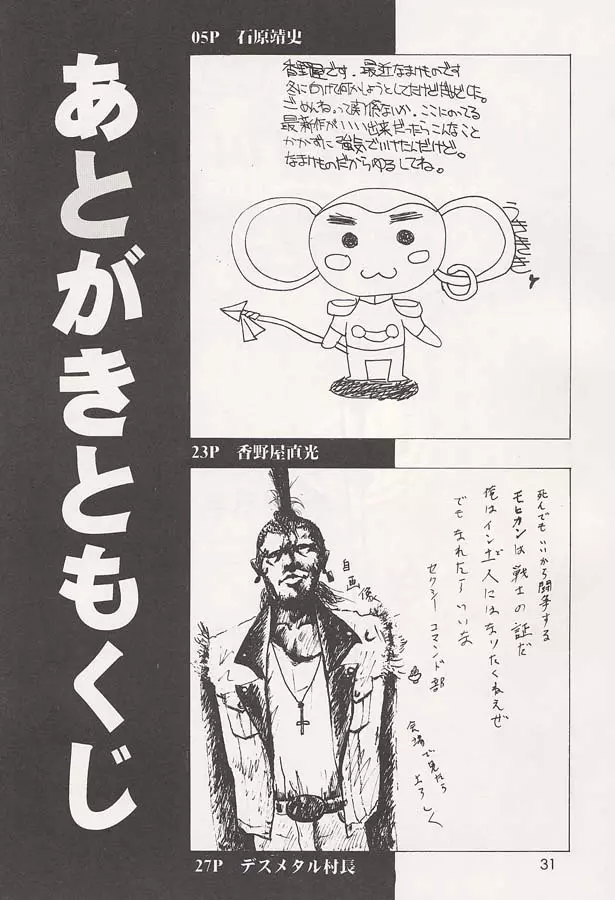 あとがきともくじ
05P 石原靖史
香野屋です。最近なまけものです
冬にむけて何かしようとしてたけど
ごめんね。って関係ないか。ここにのってる
最新作がいい出来だったらこんなこと
かかずに強気でいけたんだけど。
なまけものだからゆるしてね。
うききききき
23P 香野屋直光
死んでもいいから闘争する
モヒカンは戦士の証だ
俺はインドの人にはなりたくねえぜ
でもまれたしいいな
セクシーコマンド部
会場で見たら
よろしく
自画像
27P デスメタル村長
31